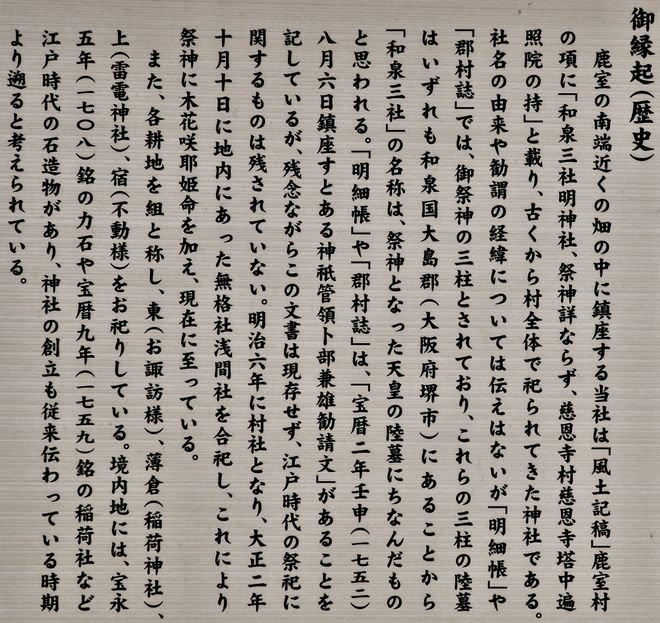 御縁起(歴史)
鹿室の南端近くの畑の中に鎮座する当社は「風土記稿」鹿室村
の項に「和泉三社明神社、祭神詳ならず、慈恩寺村慈恩寺塔中遍
照院の持」と載り、古くから村全体で祀られてきた神社である。
社名の由来や勧謂の経緯については伝えはないが「明細帳」や
「郡村誌」では、御祭神の三柱とされており、これらの三柱の陸墓
はいずれも和泉国大島郡(大阪府堺市)にあることから
「和泉三社」の名称は、祭神となった天皇の陸墓にちなんだもの
と思われる。「明細帳」や「郡村誌」は、「宝暦二年壬申(一七五二)
八月六日鎮座すとある神祇管領卜部兼雄勧請文」があることを
記しているが、残念ながらこの文書は現存せず、江戸時代の祭祀に
関するものは残されていない。明治六年に村社となり、大正二年
十月十日に地内にあった無格社浅間社を合祀し、これにより
祭神に木花咲耶姫命を加え、現在に至っている。
また、各耕地を組と称し、東(お諏訪様)、薄倉(稲荷神社)、
上(雷電神社)、宿(不動様)をお祀りしている。境内地には、宝永
五年(一七〇八)銘の力石や宝暦九年(一七五九)銘の稲荷社など
江戸時代の石造物があり、神社の創立も従来伝わっている時期
より遡ると考えられている。